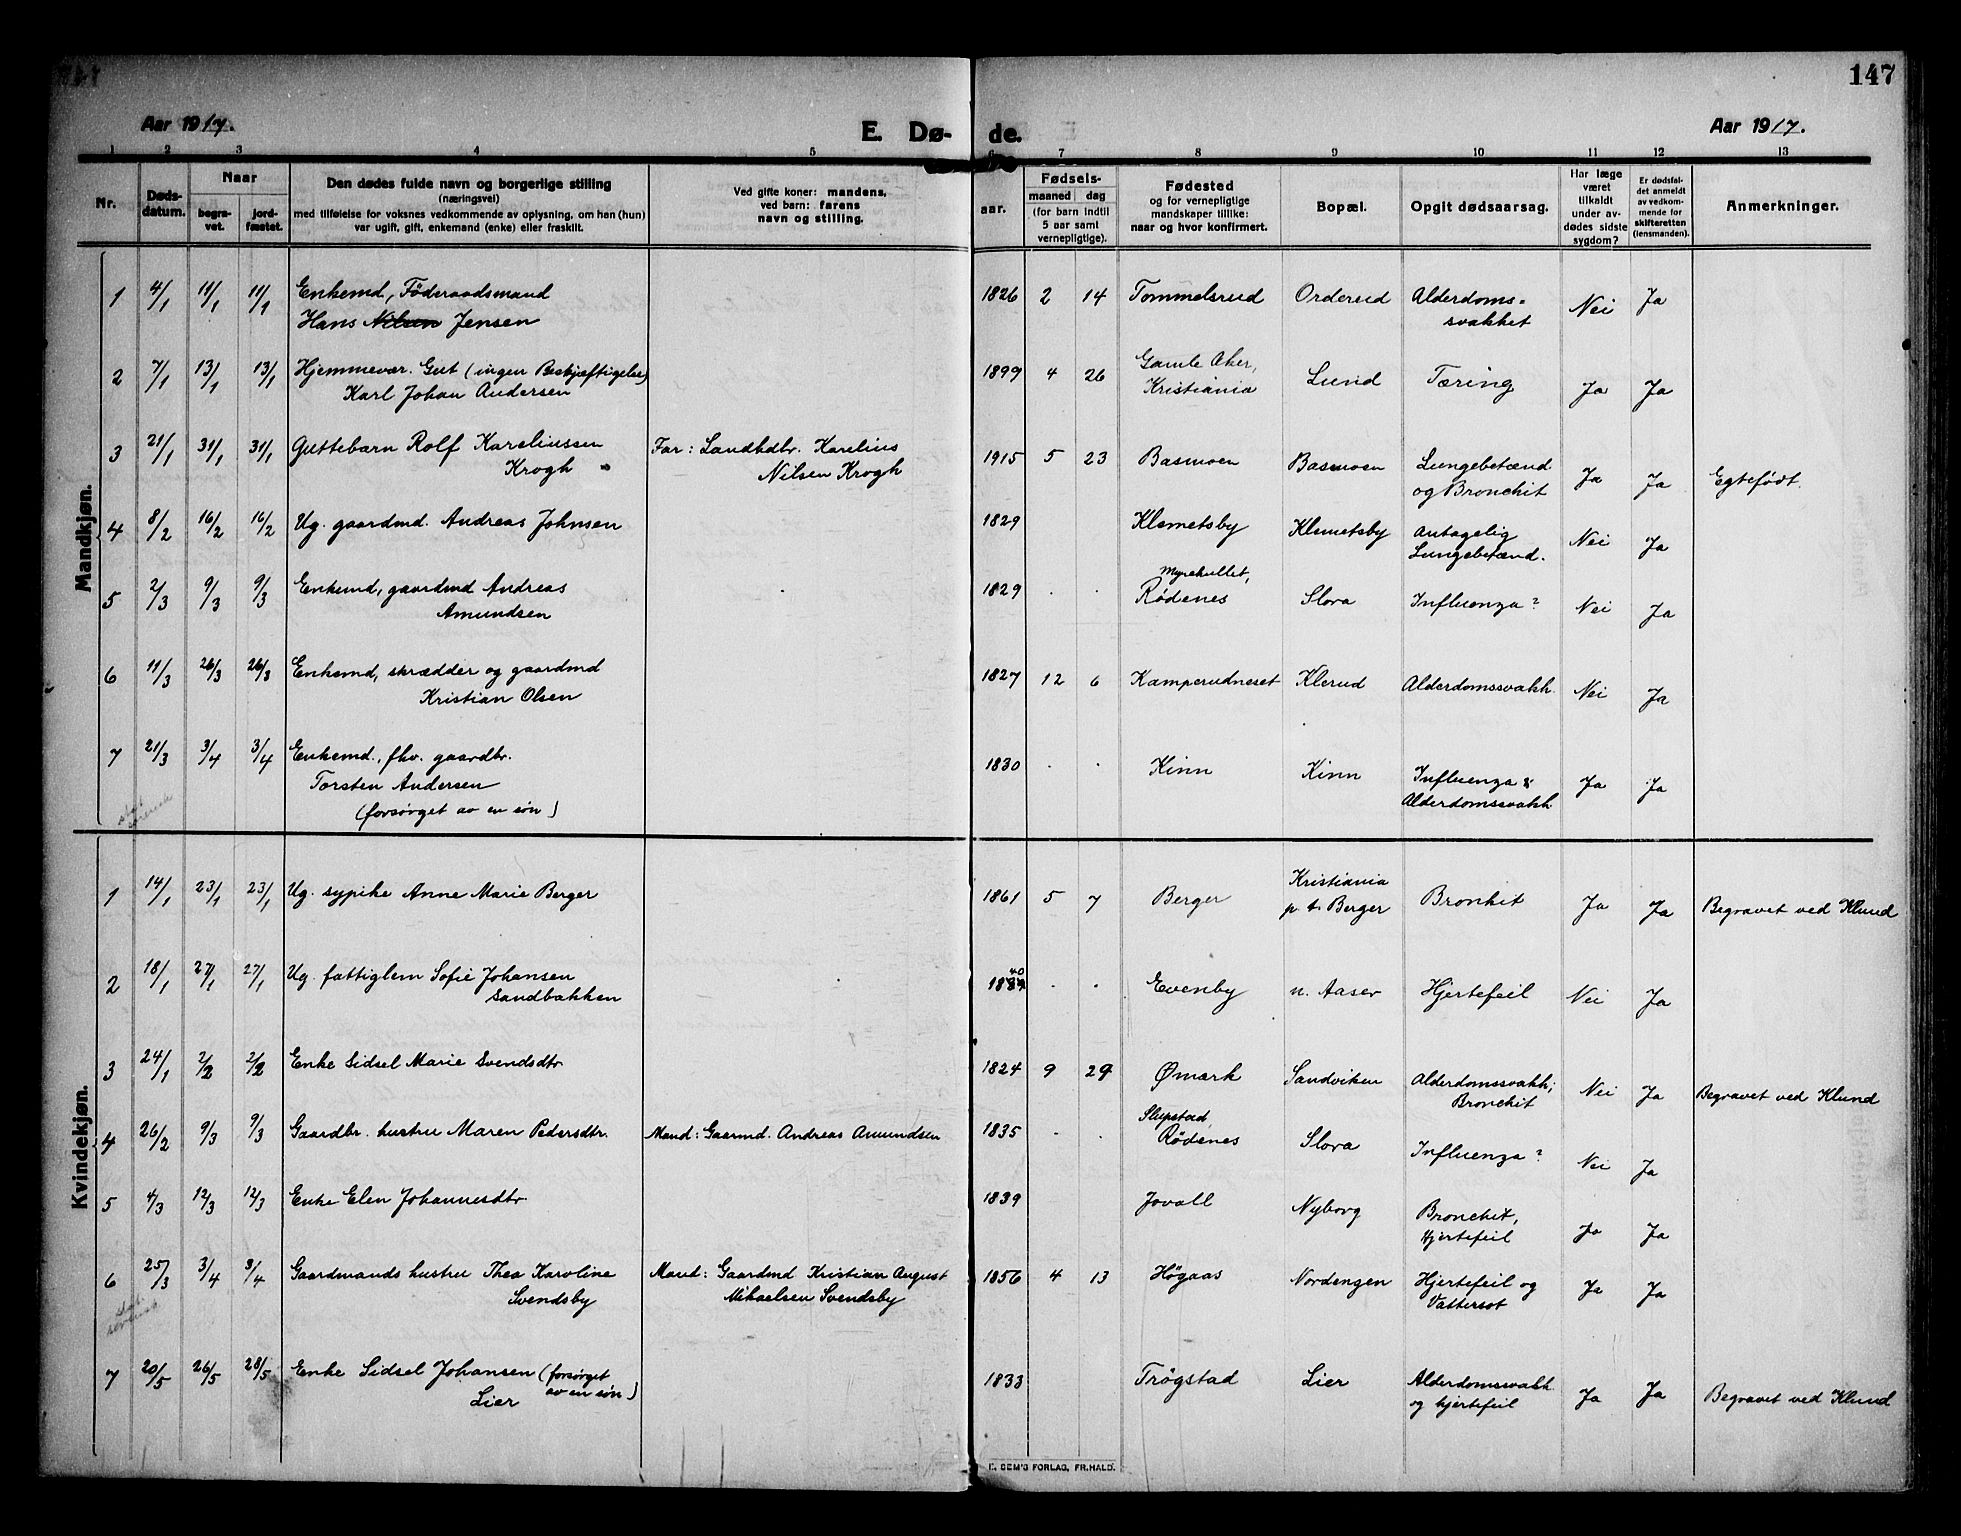 147
Aar 1917.
E. Dø-
de.
Aar 1917.
1 2 3 4 5 6 7 8 9 10 11 12 13
Nr.
Døds-
datum.
Naar
begra-
vet.
jord-
fæstet.
Den dødes fulde navn og borgerlige stilling
(næringsvei)
med tilføielse for voksnes vedkommende av oplysning, om han (hun)
var ugift, gift, enkemand (enke) eller fraskilt.
Ved gifte koner: mandens,
ved barn: farens
navn og stilling.
Fødsels-
aar.
maaned dag
(for barn indtil
5 aar samt
vernepligtige).
Fødested
og for vernepligtige
mandskaper tillike:
naar og hvor konfirmert.
Bopæl.
Opgit dødsaarsag.
Har læge
været
tilkaldt
under av-
dødes sidste
sygdom?
Er dødsfal-
det anmeldt
av vedkom-
mende for
skifteretten
(lensmanden).
Anmerkninger.
Mandkjøn.
1 4/1 11/1 11/1 Enkemd, Föderaadsmand 1826 2 14 Tommelsrud Orderud Alderdoms- Nei Ja
Hans Nilsen Jensen svakhet
2 7/1 13/1 13/1 Hjemmevær. Gut (ingen Beskjæftigelse) 1899 4 26 Gamle Aker, Lund Tæring Ja Ja
Karl Johan Andersen Kristiania
3 21/1 31/1 31/1 Guttebarn Rolf Kareliussen Far: Landhdtr. Karelius 1915 5 23 Basmoen Basmoen Lungebetænd Ja Ja Egtefødt.
Krogh Nilsen Krogh og Bronchit
4 8/2 16/2 16/2 Ug. gaardmd. Andreas Johnsen 1829 Klemetsby Klemetsby Antagelig Nei Ja
Lungebetænd.
5 2/3 9/3 9/3 Enkemd, gaardmd Andreas 1829 . . Myrehullet, Slora Influenza? Nei Ja
Amundsen Rødenes
6 11/3 26/3 26/3 Enkemd, skrædder og gaardmd 1827 12 6 Kamperudneset Klerud Alderdomssvakh. Nei Ja
Kristian Olsen
7 21/3 3/4 3/4 Enkemd., fhv. gaardbr. 1830 . . Kinn Kinn Influenza & Ja Ja
Torsten Andersen Alderdomssvakh
(forsørget av en søn)
Kvindekjøn.
1 14/1 23/1 23/1 Ug. sypike Anne Marie Berger 1861 5 7 Berger Kristiania Bronkit Ja Ja Begravet ved Klund
p. t. Berger
2 18/1 27/1 27/1 Ug. fattiglem Sofie Johansen 1834 40 . . Evenby n. Aaser Hjertefeil Nei Ja
Sandbakken
3 24/1 2/2 2/2 Enke Sidsel Marie Svendsdtr 1824 9 29 Ømark Sandviken Alderdomssvakh; Nei Ja Begravet ved Klund
Bronchit
4 26/2 9/3 9/3 Gaardbr. hustru Maren Pedersdtr. Mand: Gaarmd. Andreas Amundsen 1835 . . Slupstad, Slora Influenza? Nei Ja
Rødenes
5 4/3 12/3 12/3 Enke Elen Johannesdtr. 1839 Jovall Nyborg Bronchit, Ja Ja
Hjertefeil
6 25/3 3/4 3/4 Gaardmands hustru Thea Karoline Mand: Gaardmd Kristian August 1856 4 13 Høgaas Nordengen Hjertefeil og Ja Ja
Svendsby Mikaelsen Svendsby Vattersot
7 20/5 26/5 28/5 Enke Sidsel Johansen (forsørget 1833 Trøgstad Lier Alderdomssvakh. Ja Ja Begravet ved Klund
Lier av en søn) og hjertefeil
E. SEM'S FORLAG, FR.HALD.